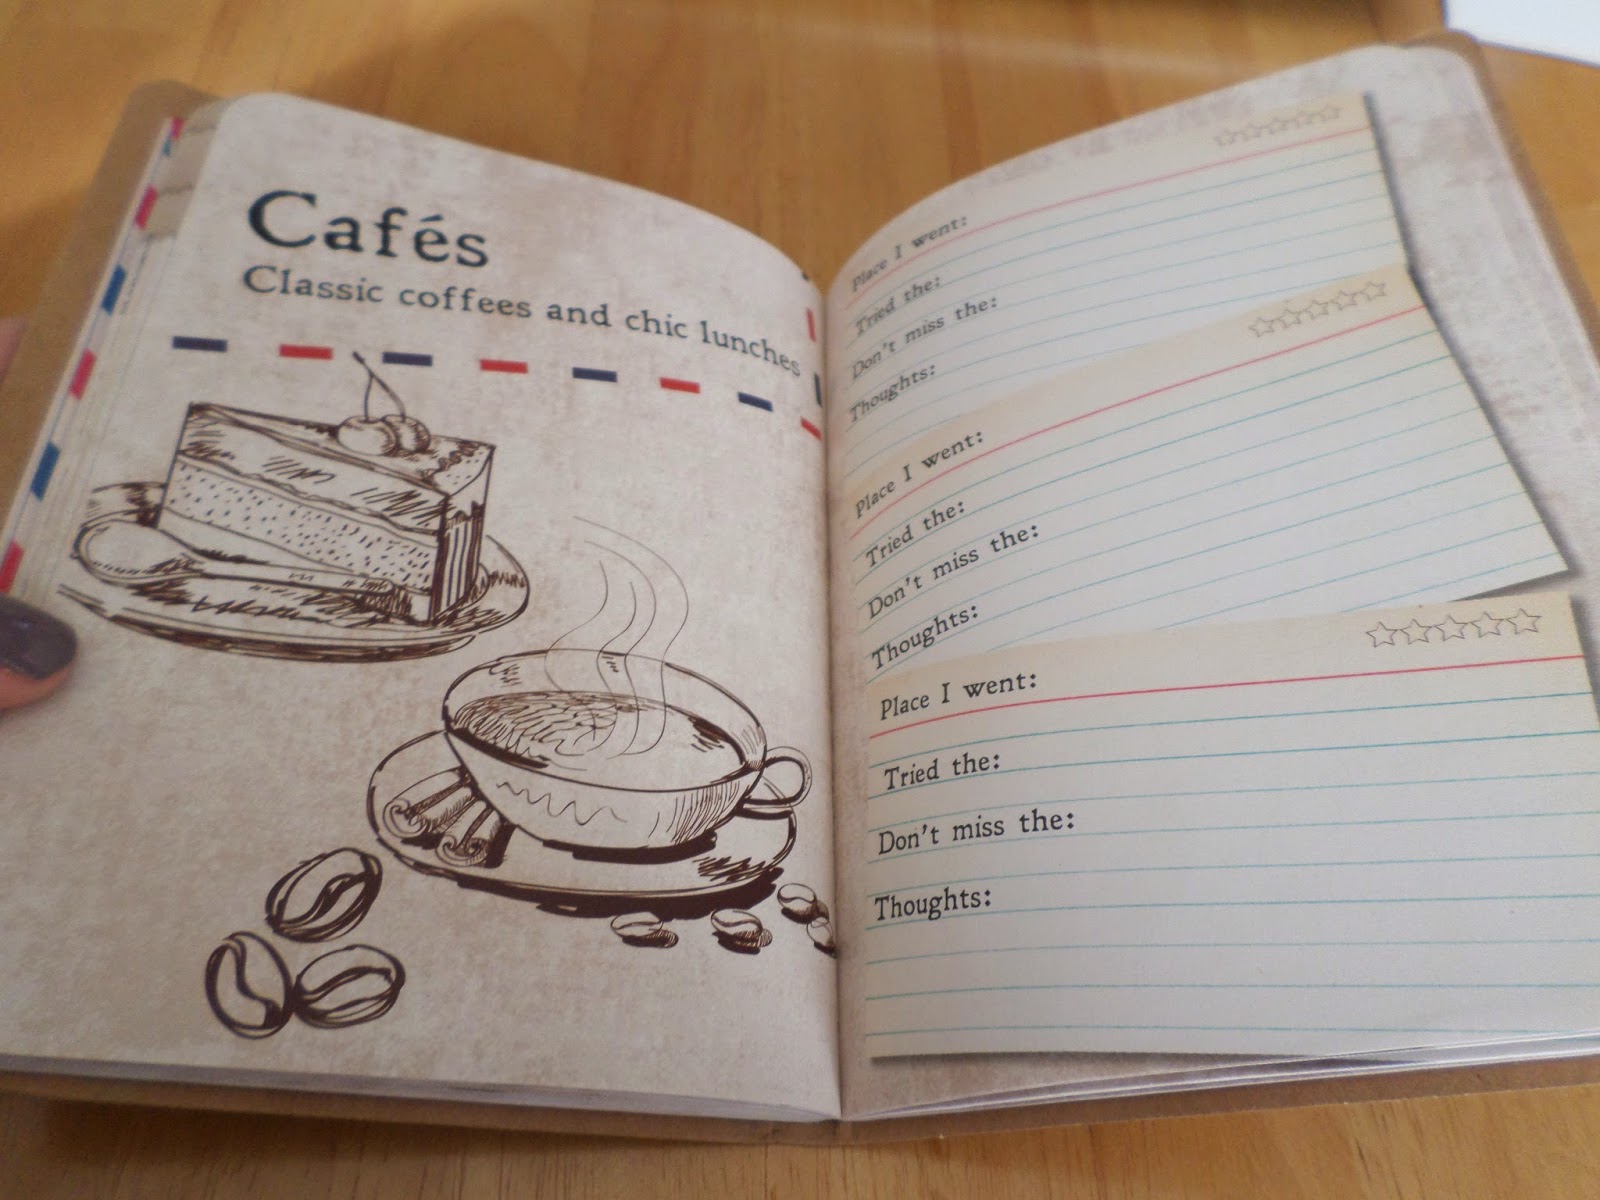 Cafés
Classic coffees and chic lunches
Place I went:
Tried the:
Don't miss the:
Thoughts:
Place I went:
Tried the:
Don't miss the:
Thoughts:
Place I went:
Tried the:
Don't miss the:
Thoughts: